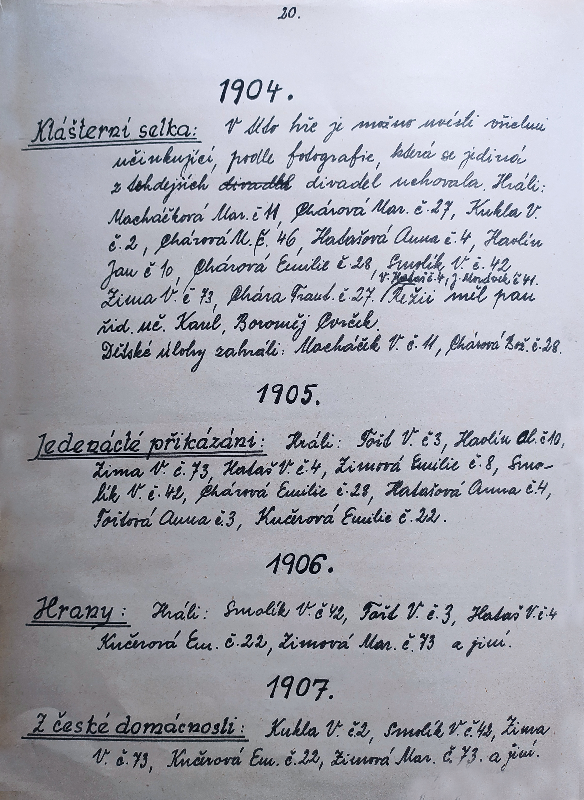 20.
1904.
Klášterní selka: V této hře je možno uvésti všechny
učinkující, podle fotografie, která se jediná
z tehdejších divadel divadel uchovala. Hráli:
Macháčková Mar. č 11, Chárová Mar. č. 27, Kukla V.
č. 2, Chárová M. č. 46, Hatašová Anna č. 4, Havlín
Jan č 10, Chárová Emilie č. 28, Smolík V. č. 42,
V. Hataš č. 4, J. Moravík č 41.
Zima V. č 73, Chára Frant. č. 27. Režii měl pan
říd. uč. Kaul, Boroměj Cvrček.
Dětské úlohy zahráli: Macháček V. č. 11, Chárová Bož. č. 28.
1905.
Jedenácté přikázání: Hráli: Tošt V. č 3, Havlín Al. č 10,
Zima V. č. 73, Hataš V. č 4, Zimová Emilie č. 8, Smo-
lík V. č. 42, Chárová Emilie č. 28, Hatašová Anna č. 4,
Toštová Anna č. 3, Kučerová Emilie č. 22.
1906.
Hrany: Hráli: Smolík V. č 42, Tošt V. č. 3, Hataš V. č 4
Kučerová Em. č. 22, Zimová Mar. č. 73 a jiní.
1907.
Z české domácnosti: Kukla V. č 2, Smolík V. č. 42, Zima
V. č. 73, Kučerová Em. č. 22, Zimová Mar. č. 73. a jiní.